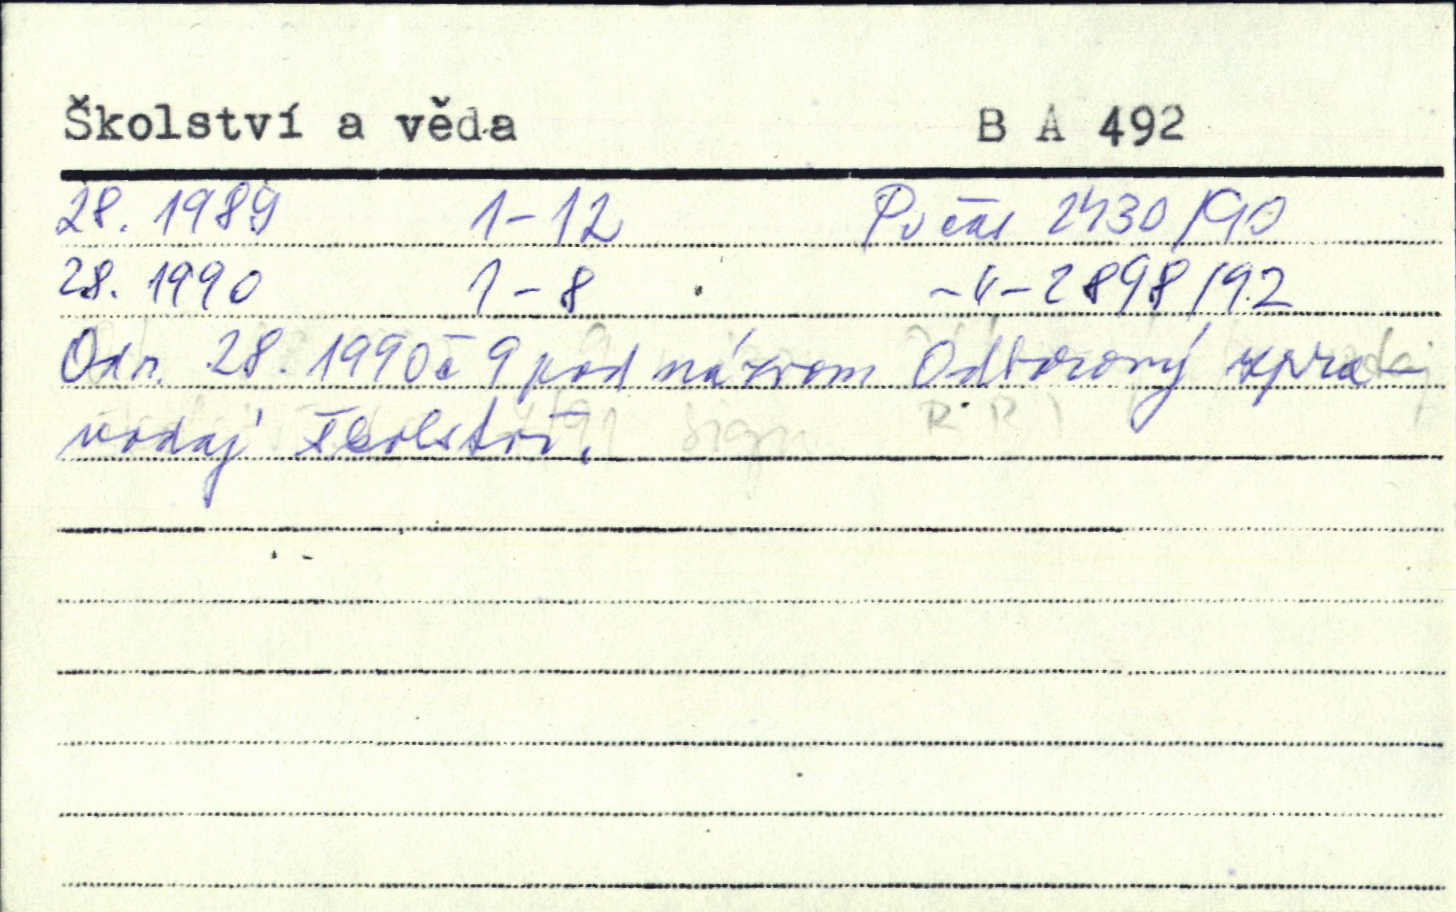 Školství a věda B A 492
28. 1989 1-12 Pv čás 2430/90
28. 1990 1-8 -"- 2898/92
Od r. 28. 1990 č 9 pod názvom Odborový zpra-
vodaj školství.